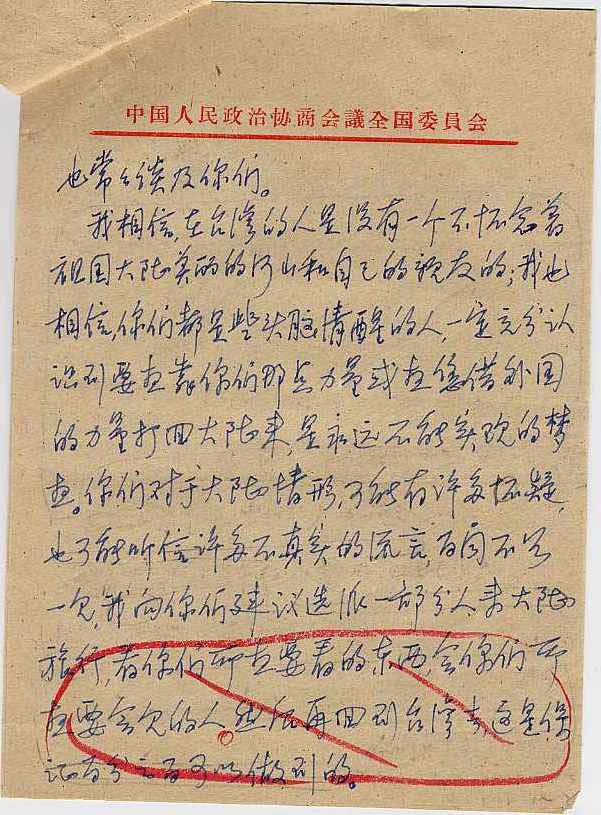 中国人民政治协商会議全国委員会
也常々谈及你们。
我相信,在台湾的人是没有一个不怀念着
祖国大陆美丽的河山和自己的亲友的;我也
相信,你们都是些头脑清醒的人,一定充分认
识到要想靠你们那点力量或想凭借外国
的力量打回大陆来,是永远不能实现的梦
想。你们对于大陆情形,可能有许多怀疑,
也可能听信许多不真实的流言,百闻不如
一见,我向你们建议选派一部分人来大陆
旅行,看你们所想要看的东西,会你们所
想要会见的人。然后再回到台湾去,这是保
证百分之百可以做到的。